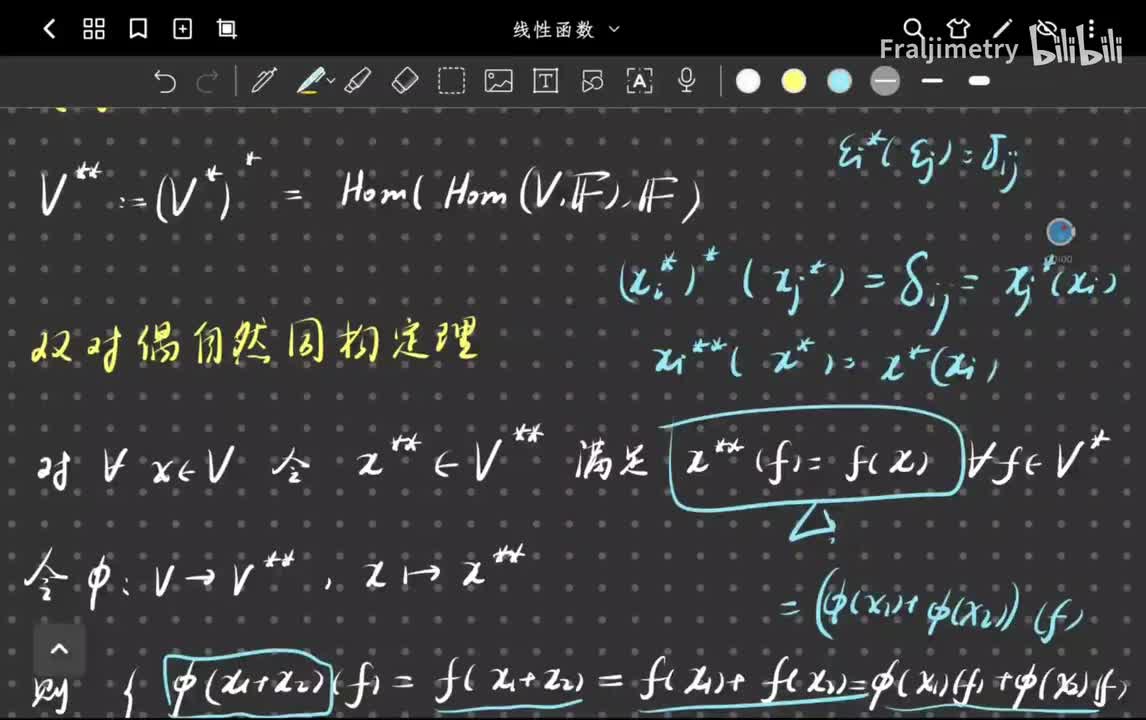 线性函数
Fraljimetry bilibili
εi*(εj)=δij
V** := (V*)* = Hom(Hom(V,𝔽),𝔽)
(xi*)*(xj*) = δij = xj*(xi)
双对偶自然同构定理
xi**(x*) = x*(xi)
对 ∀ x∈V 令 x**∈V** 满足 x**(f)=f(x) ∀f∈V*
△
令 φ: V→V**, x↦x**
= (φ(x1)+φ(x2))(f)
则 { φ(x1+x2)(f) = f(x1+x2) = f(x1)+f(x2) = φ(x1)(f)+φ(x2)(f)